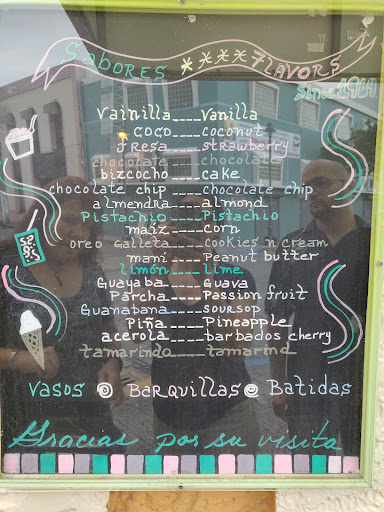 Sabores **** Flavors
Since 1964
Vainilla____Vanilla
coco____coconut
fresa____strawberry
chocolate____chocolate
bizcocho____cake
chocolate chip____chocolate chip
almendra____almond
Pistachio____Pistachio
maiz____corn
oreo Galleta____cookies n cream
mani____Peanut butter
limón____lime
Guayaba____Guava
Parcha____Passion fruit
Guanabana____soursop
Piña____Pineapple
acerola____barbados cherry
tamarindo____tamarind
Vasos Barquillas Batidas
Gracias por su visita